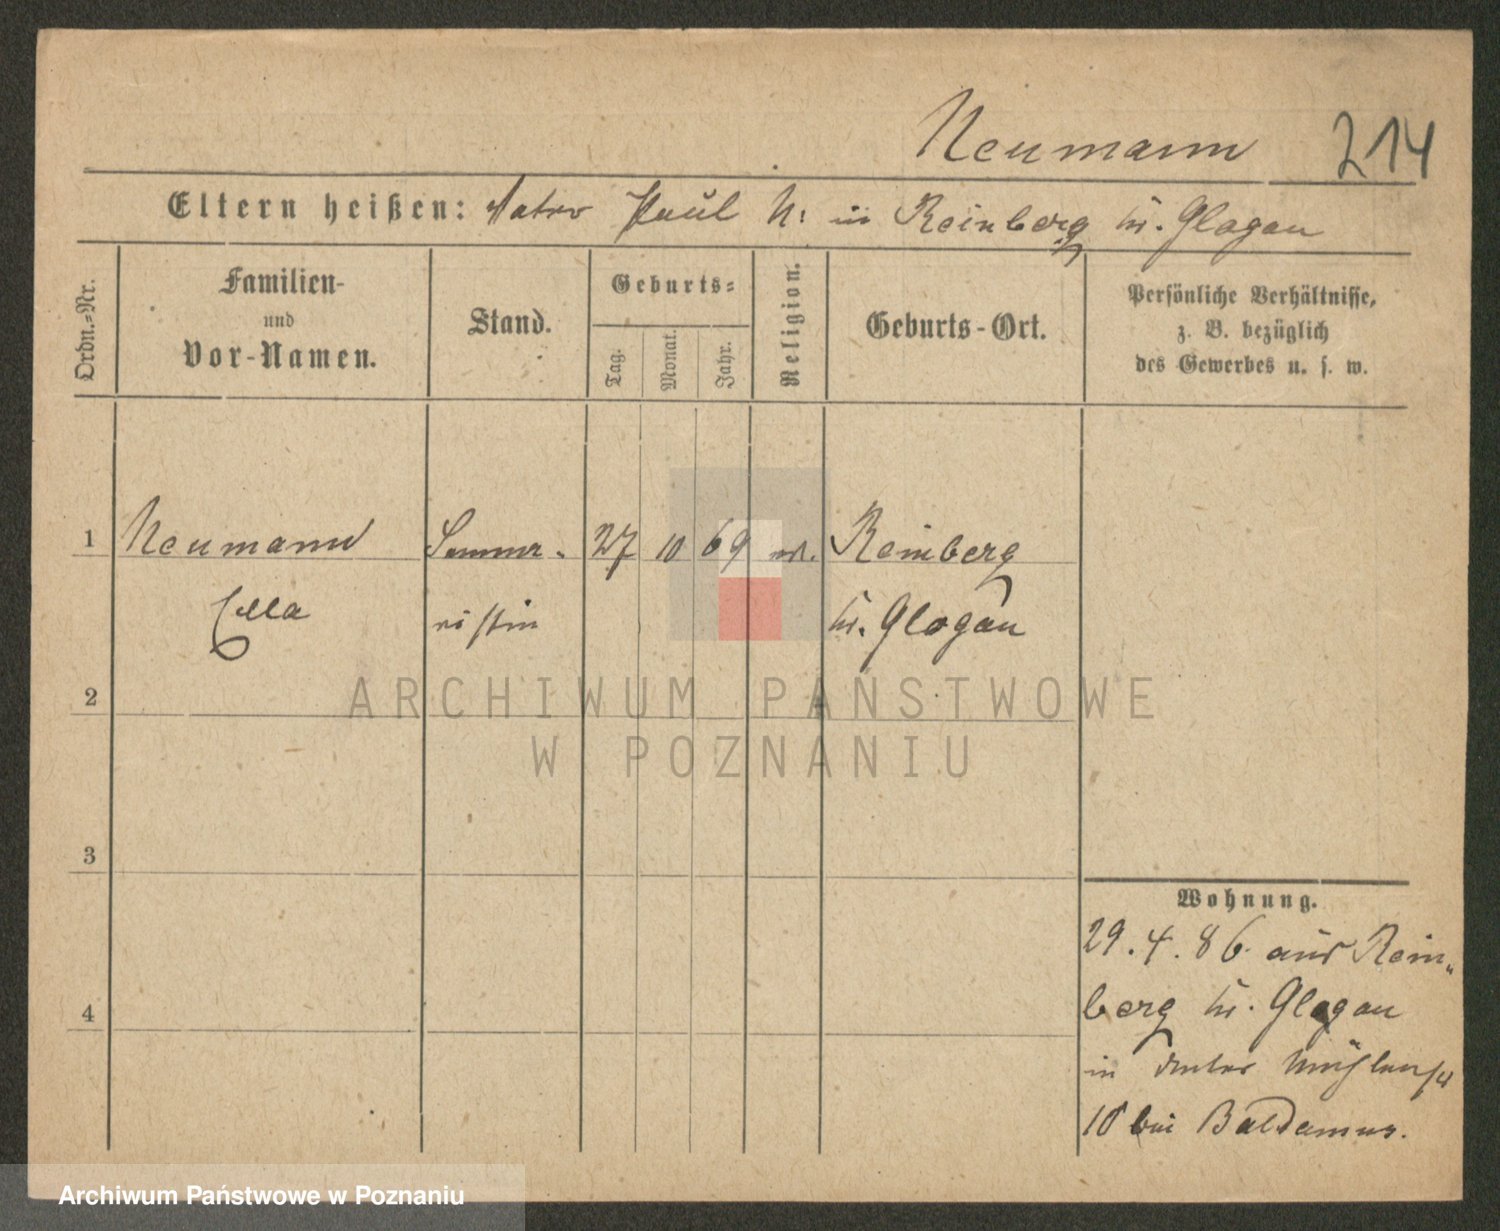 Neumann 214
Eltern heißen: Vater Paul N: in Reinberg Kr. Glogau
Ordn.=Nr.
Familien-
und
Vor-Namen.
Stand.
Geburts=
Tag.
Monat.
Jahr.
Religion.
Geburts-Ort.
Persönliche Verhältnisse,
z. B. bezüglich
des Gewerbes u. s. w.
1 Neumann 27 10 69 Reinberg
Ella Kr. Glogau
2
3
4
Wohnung.
29.4.86 aus Rein-
berg Kr. Glogau
in Mühlenstr
10 bei Baldamus.
ARCHIWUM PAŃSTWOWE
W POZNANIU
Archiwum Państwowe w Poznaniu